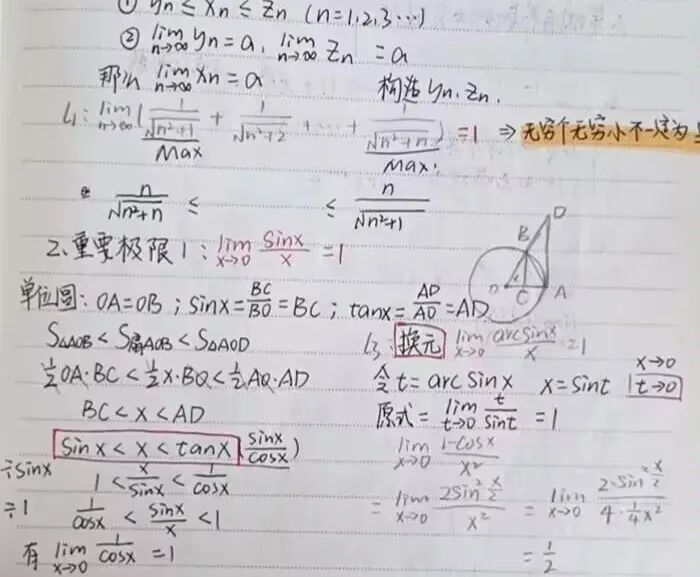 ① yn ≤ xn ≤ zn (n=1,2,3…)
② lim n→∞ yn = a, lim n→∞ zn = a
那么 lim n→∞ xn = a 构造 yn, zn.
lim n→∞ ( 1/√(n²+1) + 1/√(n²+2) + … + 1/√(n²+n) ) = 1 ⇒ 无穷个无穷小不一定为
Max Max
n/√(n²+n) ≤ ≤ n/√(n²+1)
2、重要极限1: lim x→0 sinx/x = 1
D
B
O x C A
单位圆: OA=OB ; sinx = BC/BO = BC ; tanx = AD/AO = AD
S△AOB < S扇AOB < S△AOD
½OA·BC < ½x·BO < ½AO·AD
BC < x < AD
sinx < x < tanx (sinx/cosx)
÷sinx 1 < x/sinx < 1/cosx
÷1 1/cosx < sinx/x < 1
有 lim x→0 1/cosx = 1
换元 lim x→0 arcsinx/x = 1
令 t = arcsinx x = sint x→0 t→0
原式 = lim t→0 t/sint = 1
lim x→0 (1-cosx)/x²
= lim x→0 2sin²(x/2)/x² = lim x→0 2·sin²(x/2)/(4·¼x²)
= ½